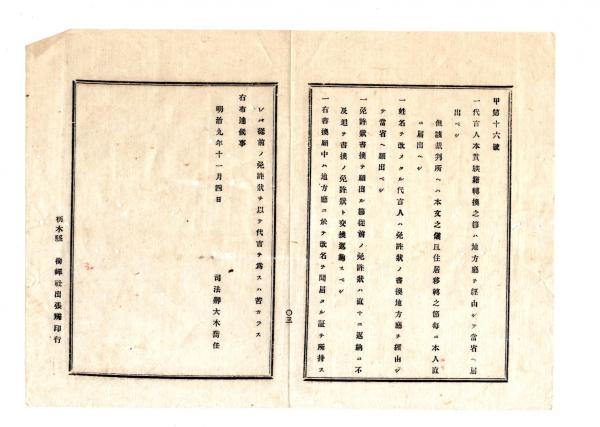 甲第十六號
一代言人本貫族籍轉換之節ハ地方廳ヲ經由シテ當省ヘ屆
出ベシ
但該裁判所ヘハ本文之儀且住居移轉之節每ニ本人直
ニ屆出ベシ
一姓名ヲ改メタル代言人ハ免許狀ノ書換地方廳ヲ經由シ
テ當省ヘ願出ベシ
一免許狀書換ヲ願出ル節從前ノ免許狀ハ直ヤニ返納ニ不
及追テ書換ノ免許狀ト交換返納スベシ
一右書換願中ハ地方廳ニ於テ改名ヲ聞屆タル証ヲ所持ス
〇三
レバ從前ノ免許狀ヲ以テ代言ヲ爲スハ苦カラス
右布達候事
明治九年十一月四日
司法卿大木喬任
栃木縣
社出張所印行